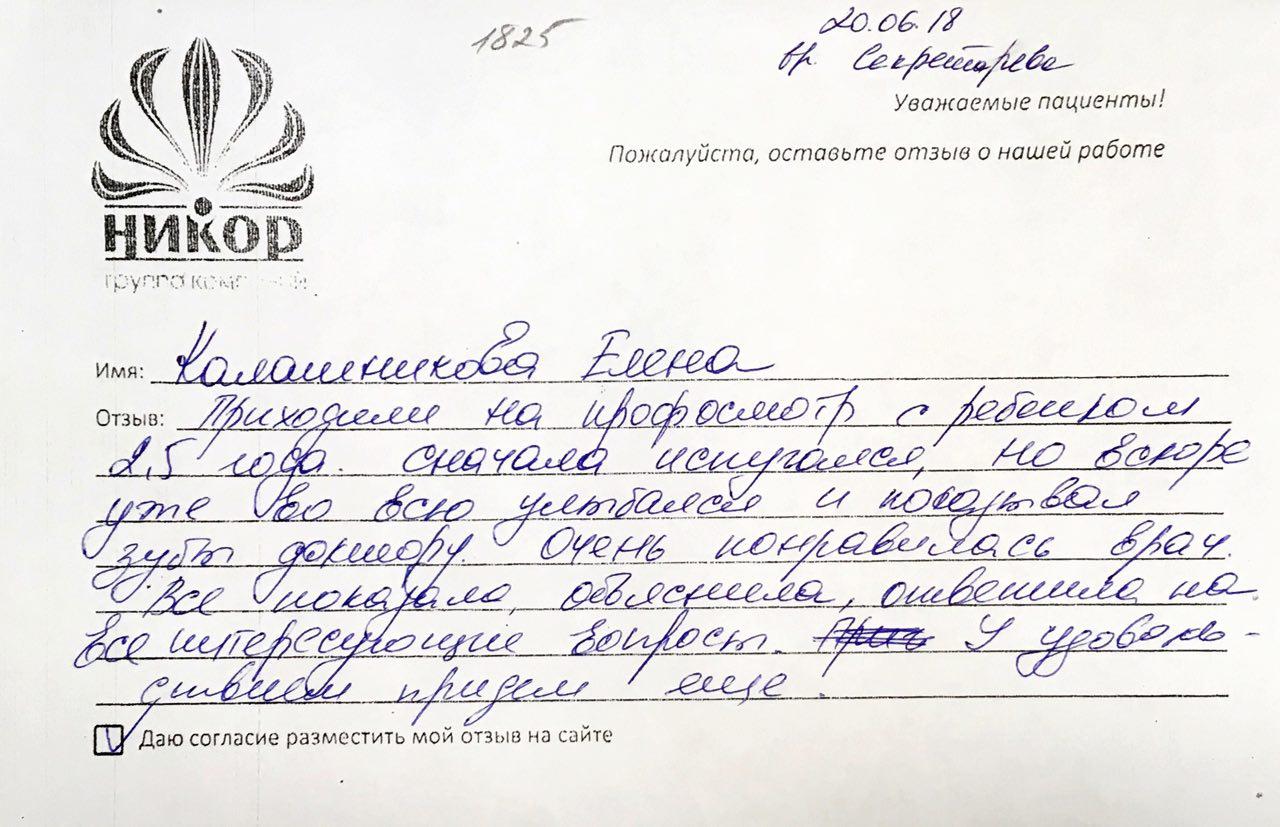 1825
20.06.18
вр. Секретарева
Уважаемые пациенты!
Пожалуйста, оставьте отзыв о нашей работе
НИКОР
группа компаний
Имя: Калашникова Елена
Отзыв: Приходили на профосмотр с ребенком
2,5 года. сначала испугался, но вскоре
уже во всю улыбался и показывал
зубы доктору. Очень понравилась врач.
Все показала, объяснила, ответила на
все интересующие вопросы. У удоволь-
ствием придем еще.
Даю согласие разместить мой отзыв на сайте